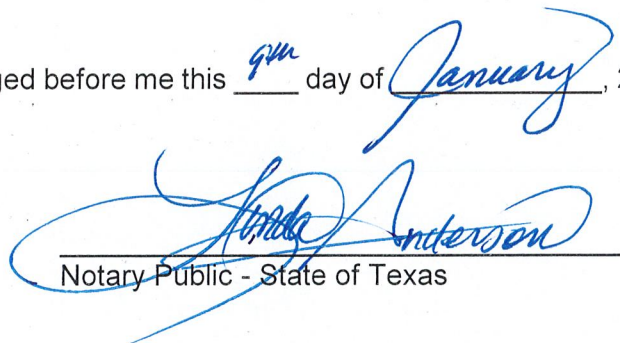 ged before me this 9th day of January, 2
Linda Anderson
Notary Public - State of Texas